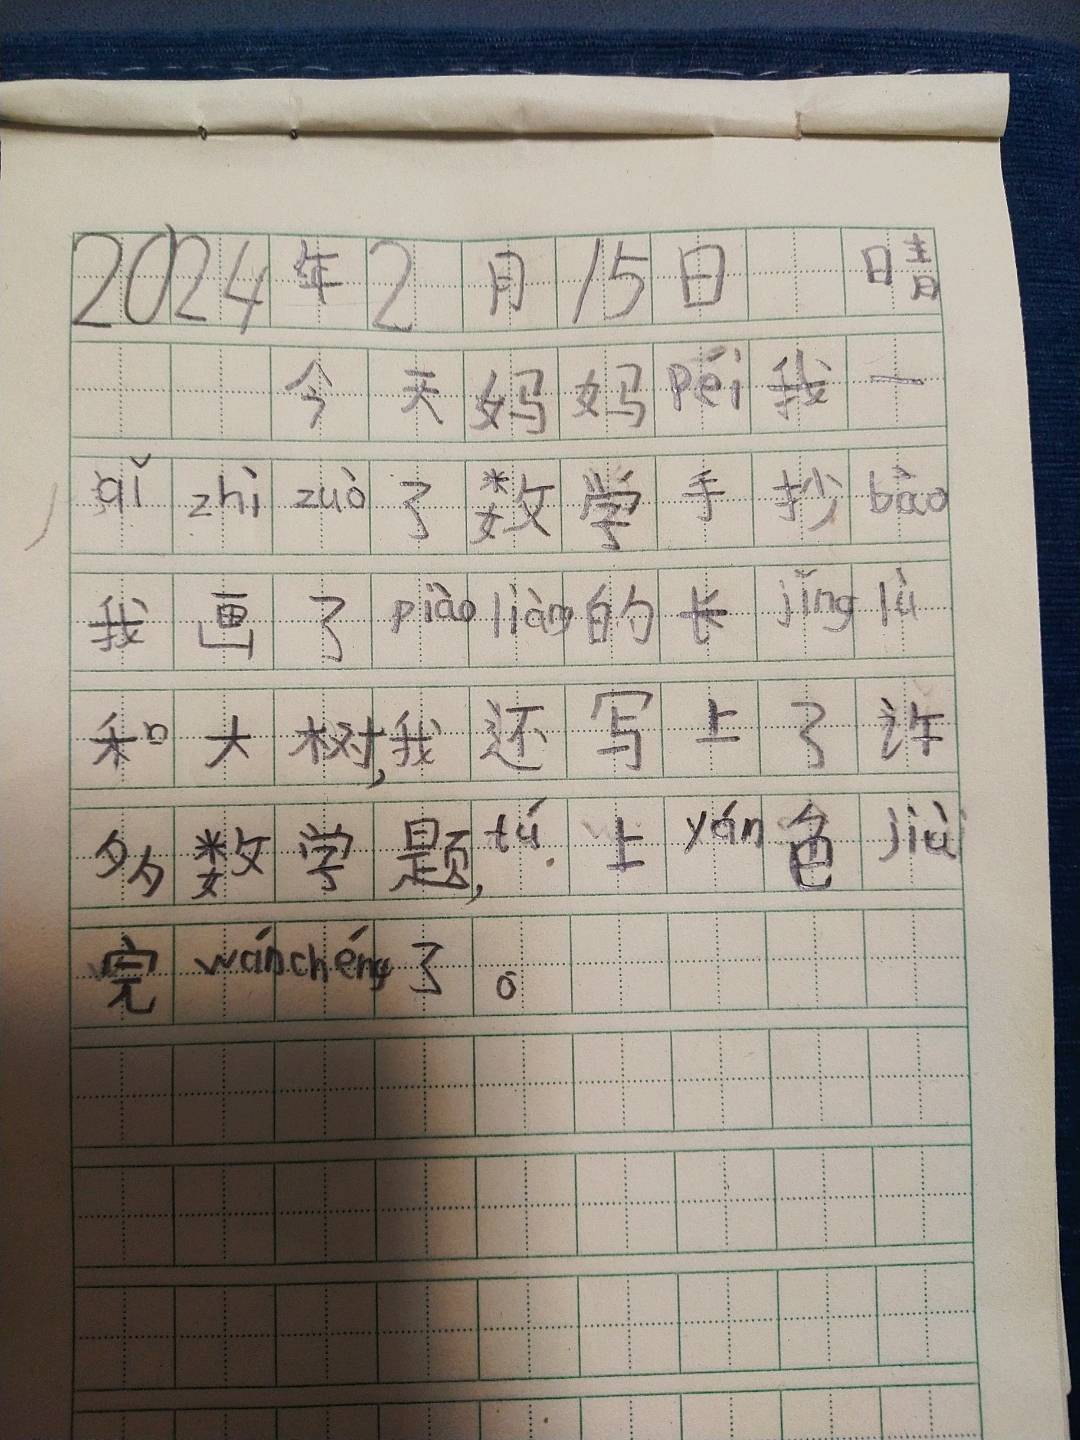 2024年2月15日 晴
今天妈妈péi我一
qǐ zhì zuò了数学手抄bào
我画了piào liàng的长jǐng lù
和大树,我还写上了许
多数学题,tú上yán色jiù
完wánchéng了。